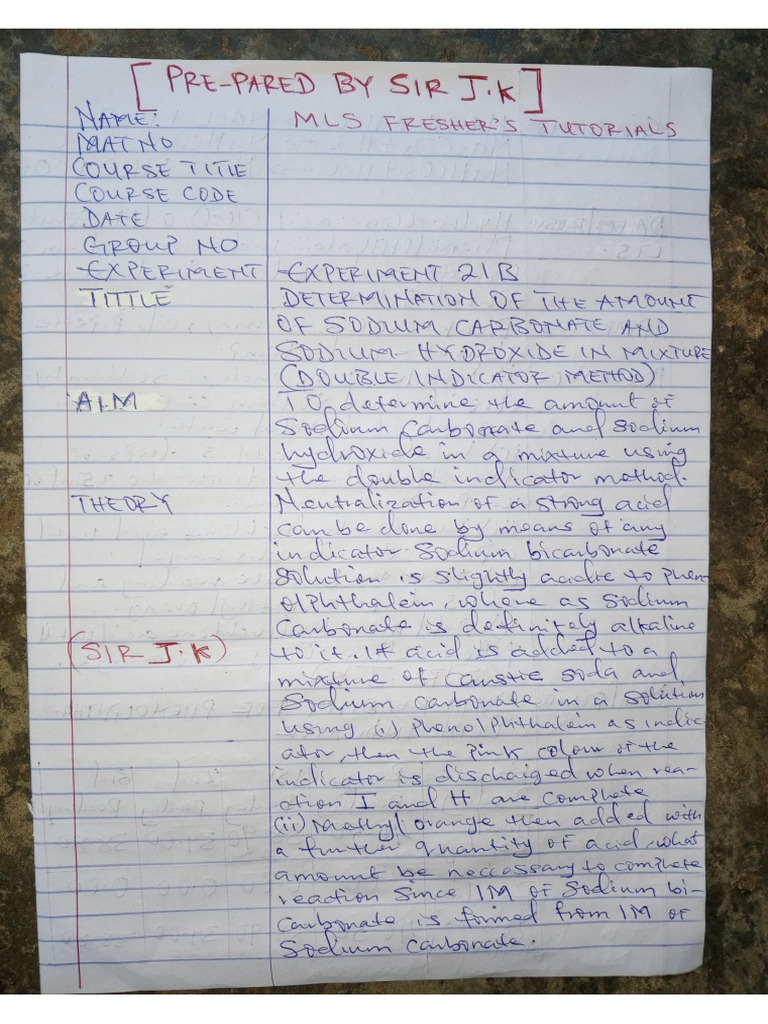 [PRE-PARED BY SIR J.K]
NAME:
MLS FRESHER'S TUTORIALS
MAT NO
COURSE TITLE
COURSE CODE
DATE
GROUP NO
EXPERIMENT EXPERIMENT 21B
TITTLE DETERMINATION OF THE AMOUNT
OF SODIUM CARBONATE AND
SODIUM HYDROXIDE IN MIXTURE
(DOUBLE INDICATOR METHOD)
AIM TO determine the amount of
Sodium Carbonate and sodium
hydroxide in a mixture using
the double indicator method.
THEORY Neutralization of a strong acid
can be done by means of any
indicator. Sodium bicarbonate
solution is slightly acidic to phen-
olphthalein, where as Sodium
Carbonate is definitely alkaline
(SIR J.K) to it. If acid is added to a
mixture of caustic soda and
Sodium carbonate in a solution
using (i) phenolphthalein as indic-
ator, then the pink colour of the
indicator is discharged when rea-
ction I and II are complete
(ii) Methyl orange then added with
a further quantity of acid, what
amount be neccessary to complete
reaction since 1M of Sodium bi-
Carbonate is formed from 1M of
Sodium carbonate.